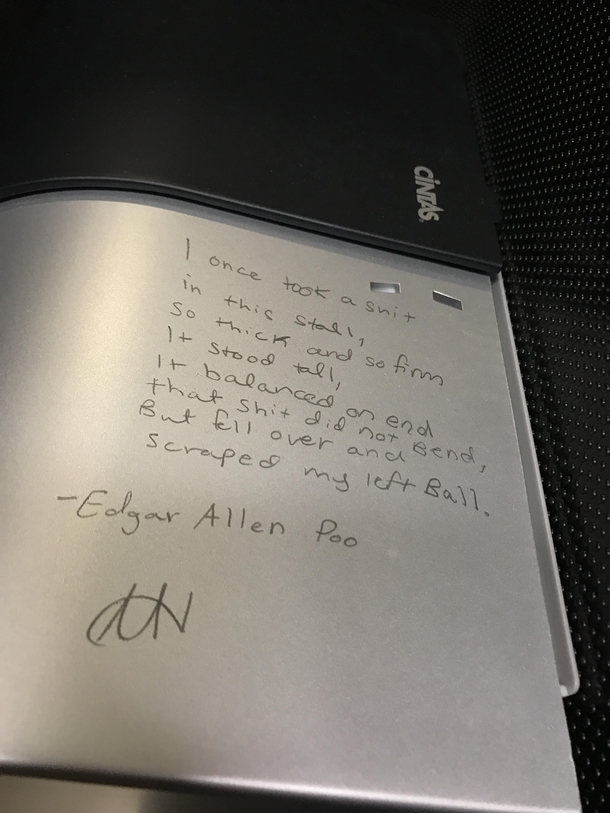 CINTAS.
I once took a shit
in this stall,
so thick and so firm
It stood tall,
It balanced on end
that shit did not Bend,
But fell over and
scraped my left Ball.
-Edgar Allen Poo